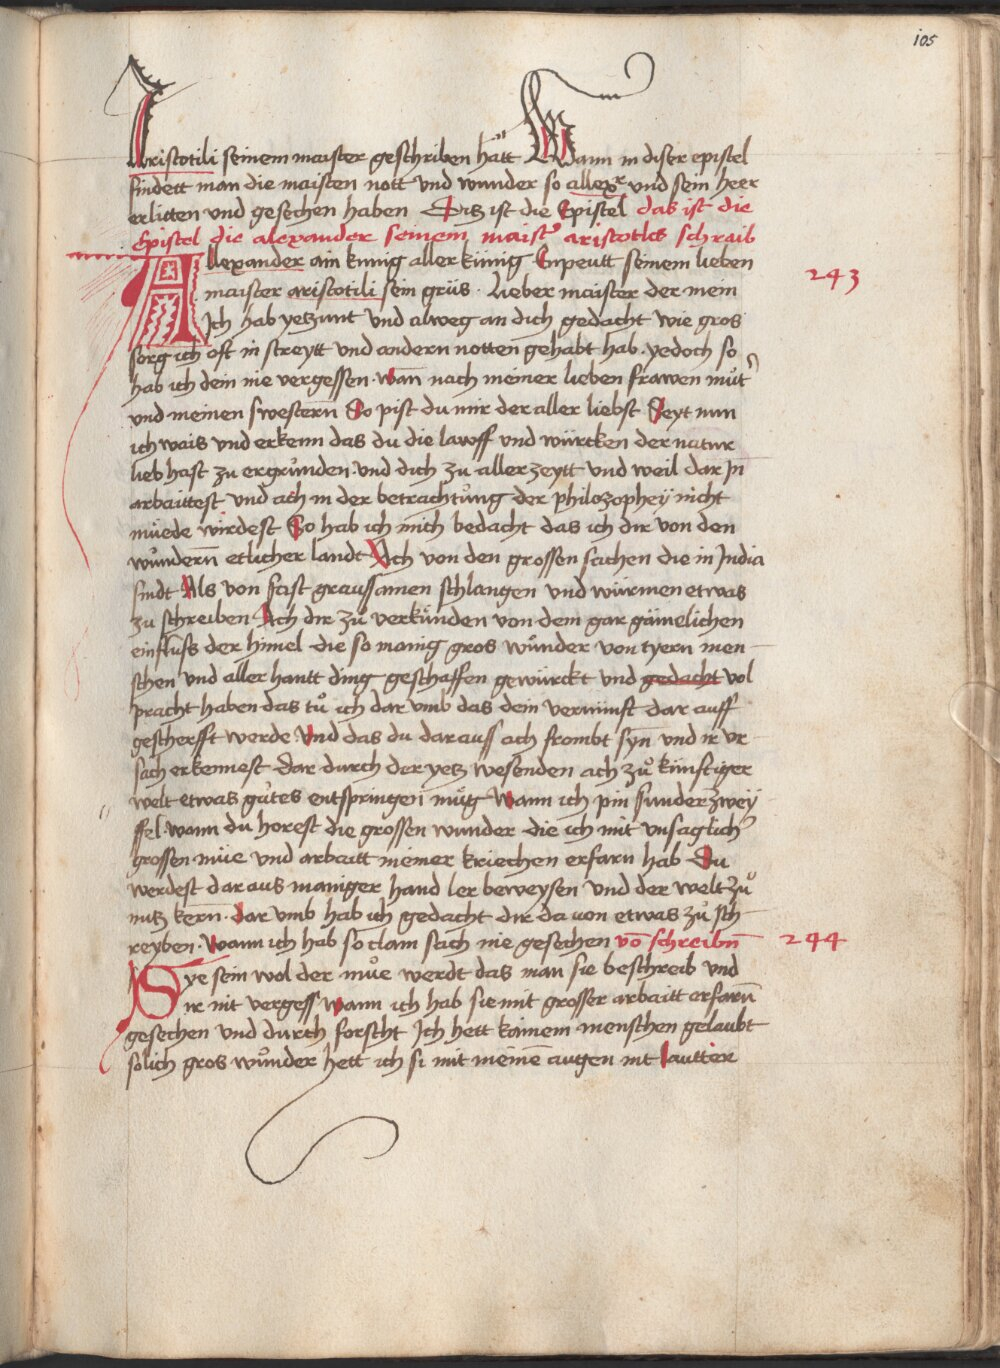 105
Aristotili seinem maister geschriben hätt Wann in diser epistel
findett man die maisten nott und wunder so allexr und sein heer
erlitten und gesechen haben Dis ist die Epistel das ist die
Epistel die alexander seinem maistr aristotles schraib
Allexander ain kunig aller künig Enpeutt seinem lieben
243
maister aristotili sein grüs · Lieber maister der mein
Ich hab yetzunt und alweg an dich gedacht wie gros
sorg ich oft in streytt und andern notten gehabt hab · yedoch so
hab ich dein nie vergessen · wan̄ nach meiner lieben frawen můtr
und meinen swestern̄ So pist du mir der aller liebst Seyt nun
ich wais und erkenn das du die lawff und würcken der natur
lieb hast zu ergrůnden · und dich zu aller zeytt und weil dar jn
arbaittest und ach in der betrachtůng der philozophey nicht
müede wirdest So hab ich mich bedacht das ich dir von den
wůndern̄ etlicher landt Ach von den grossen sachen die in India
sindt Als von fast graussamen schlangen und würmen etwas
zu schreiben Ach dir zů verkünden von dem gar gämelichen
einfluss der himel die so manig gros wůnder von tyern men
schen und aller hantt ding geschaffen gewürckt und gedacht vol
pracht haben das tů ich dar umb das dein vernunft dar auff
gescherfft werde Und das du darauss ach frombt syn und ir ur
sach erkennest dar durch der yetz wesenden ach zů künftiger
welt etwas gůtes entspringen můg Wann ich pin sunder zwey
ffel · wann du horest die grossen wunder die ich mit unsaglichr
grossen müe und arbaitt meiner kriechen erfarn hab Du
werdest dar aus maniger hand ler beweysen und der welt zů
nutz kern̄ · dar umb hab ich gedacht dir da von etwas zů sch
reyben · Wann ich hab so clain sach nie gesechen vō schreibn̄
244
Sye sein wol der můe werdt das man sie beschreib und
ir nit vergess wann ich hab sie mit grosser arbaitt erfarn̄
gesechen und durch forscht Ich hett kainem menschen gelaubt
solich gros wůnder hett ich si mit meinē augen nit lautter